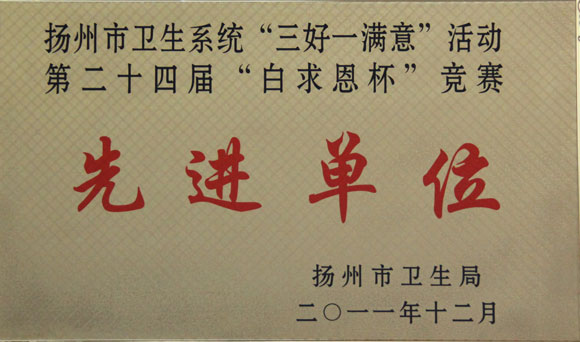 扬州市卫生系统“三好一满意”活动
第二十四届“白求恩杯”竞赛
先进单位
扬州市卫生局
二〇一一年十二月